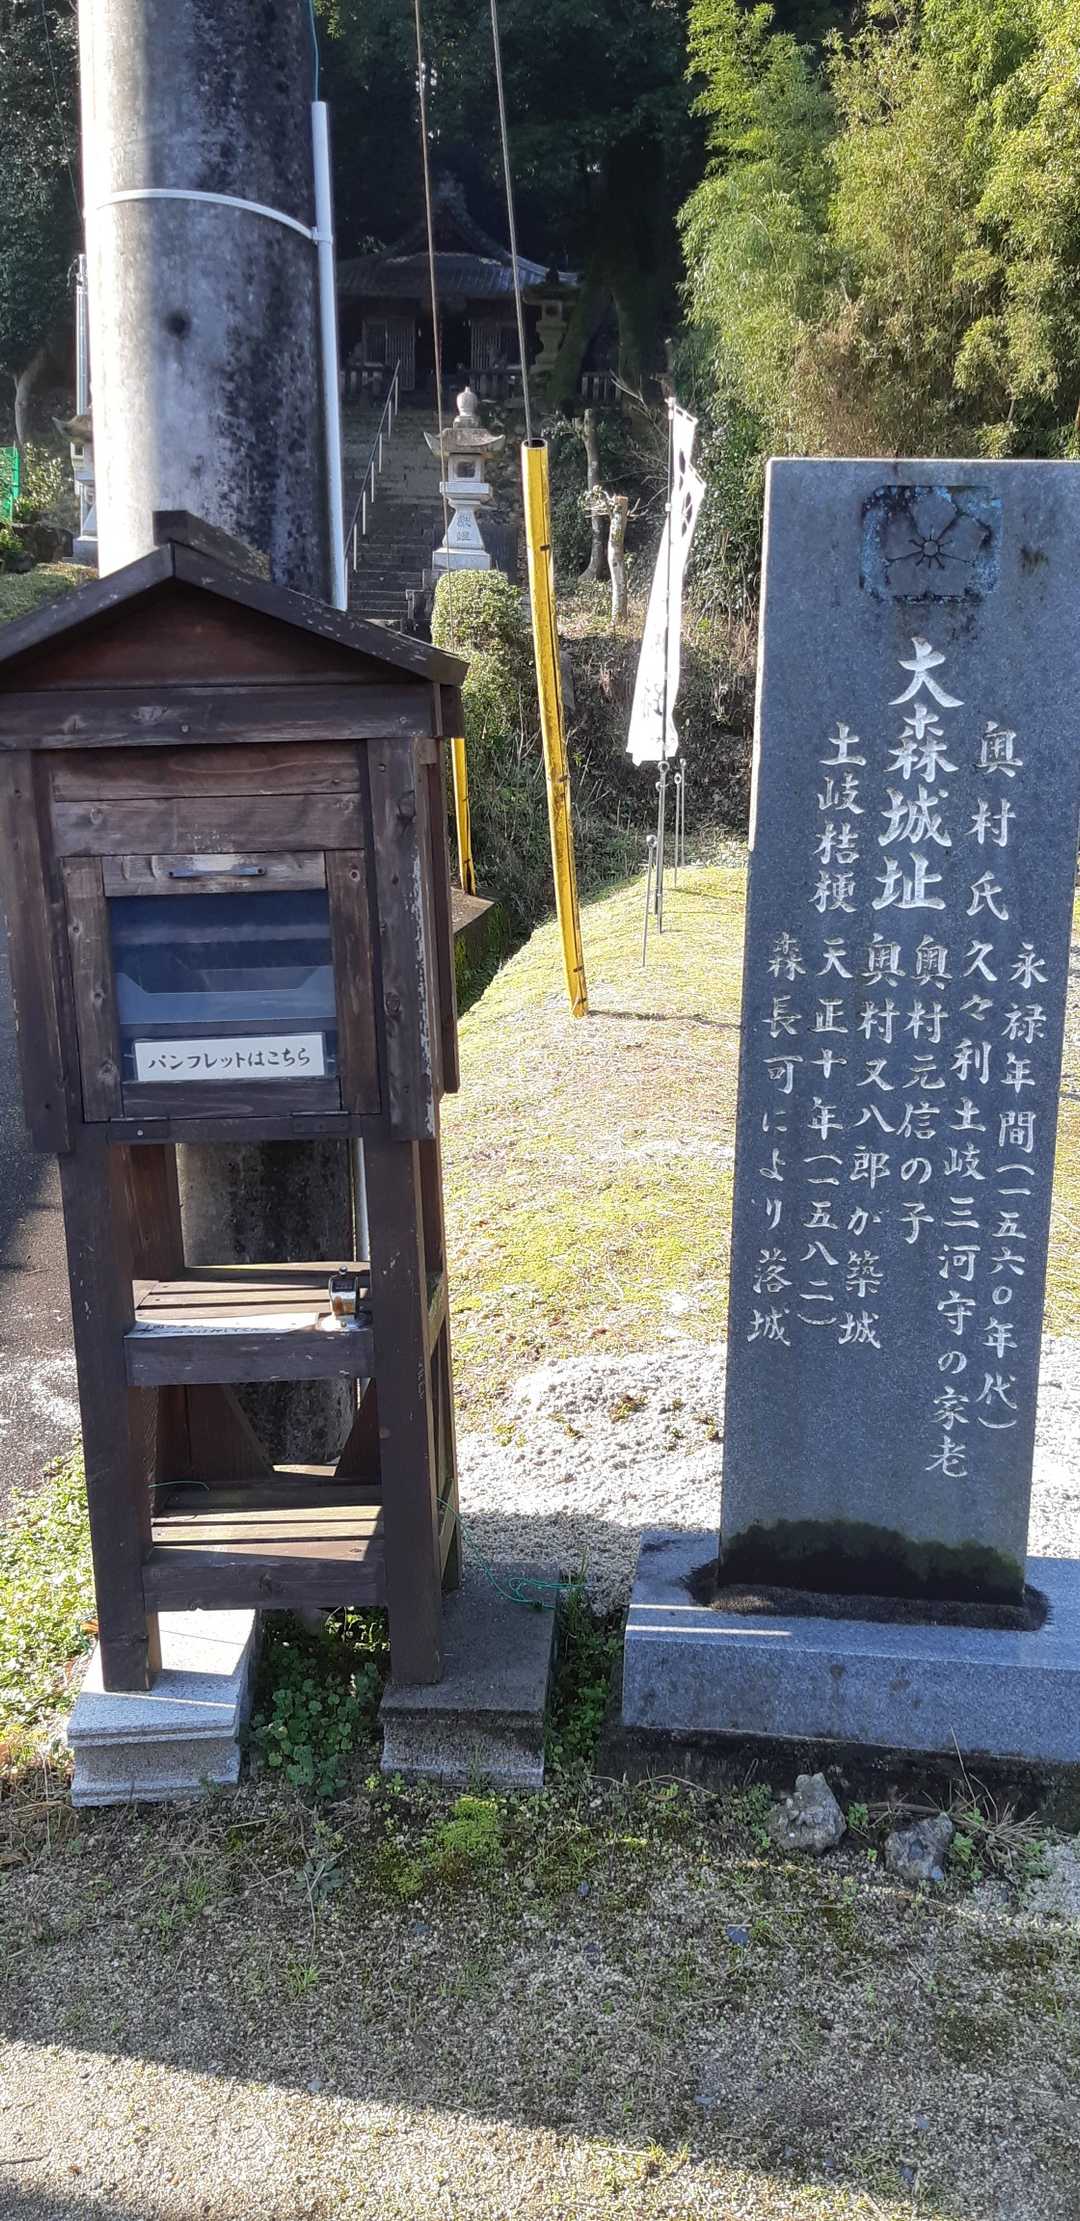 大森城址
奥村氏
土岐桔梗
永禄年間(一五六〇年代)
久々利土岐三河守の家老
奥村元信の子
奥村又八郎が築城
天正十年(一五八二)
森長可により落城
パンフレットはこちら